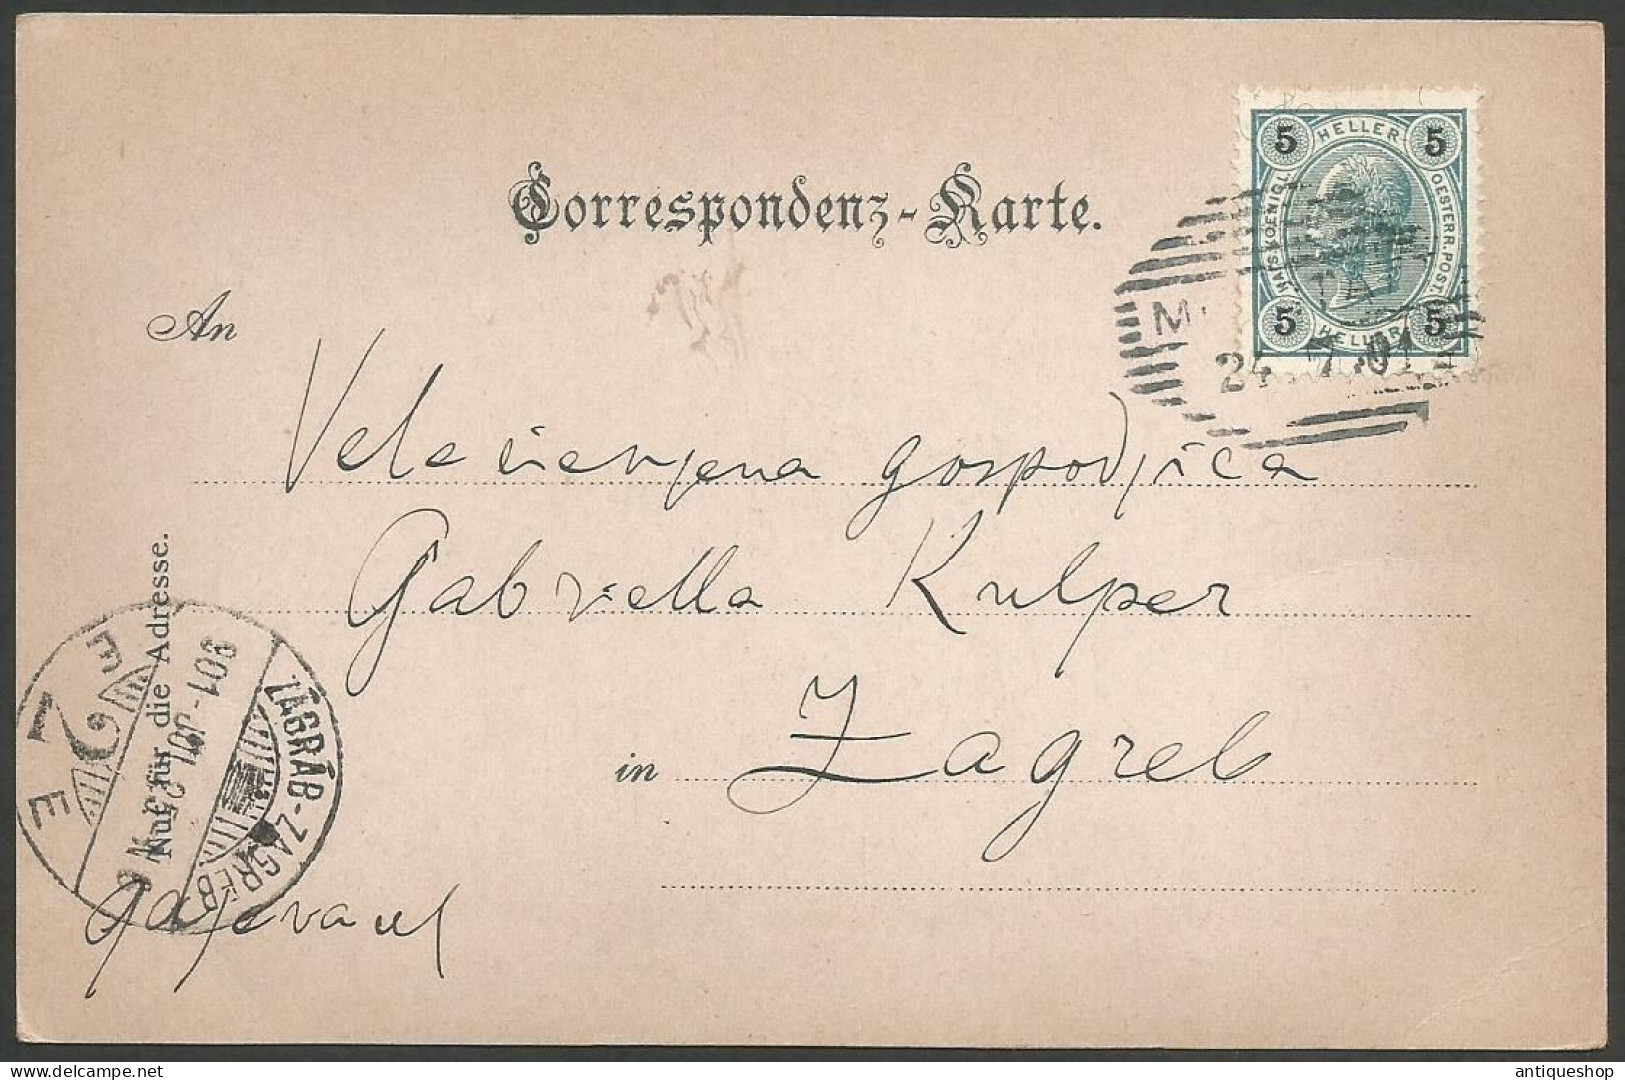 Correspondenz-Karte.
5 HELLER 5
KAIS. KOENIGL. OESTERR. POST.
5 HELLER 5
24.7.01
An
Velecienjena gospodjica
Gabriella Kulper
in Zagreb
Nur für die Adresse.
ZÁGRÁB-ZAGREB
901 JUL
Gajeva ul
antiqueshop